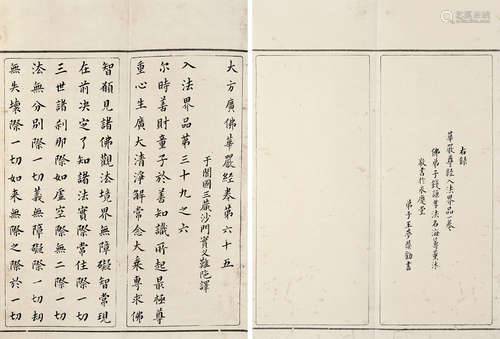 大方廣佛華嚴經卷第六十五
于闐國三藏沙門實叉難陀譯
入法界品第三十九之六
尒時善財童子於善知識所起最極尊
重心生廣大清淨解常念大乘專求佛
智願見諸佛觀法境界無障礙智常現
在前決定了知諸法實際常住際一切
三世諸刹那際如虛空際無二際一切
法無分別際一切義無障礙際一切劫
無失壞際一切如來無際之際於一切
右錄
華嚴尊經入法界品一卷
佛弟子錢謙益法名海印尊
敬書於
弟子王夢